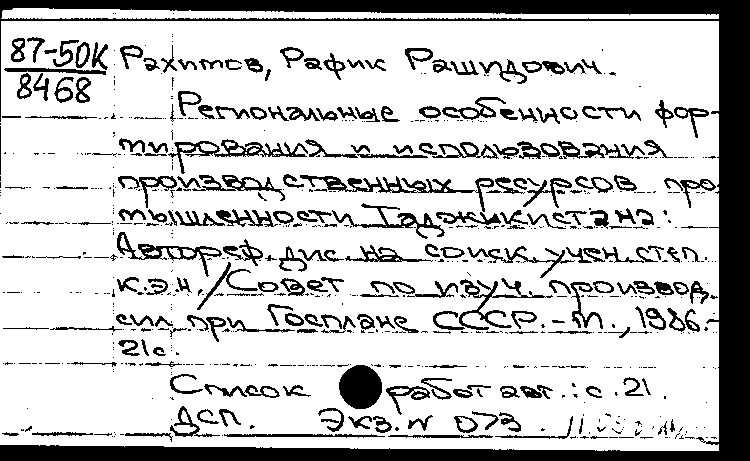 87-50К
8468
Рахимов, Рафик Рашидович.
Региональные особенности фор-
мирования и использования
производственных ресурсов про
мышленности Таджикистана:
Автореф. дис. на соиск. учен. степ.
к.э.н. / Совет по изуч. производ.
сил при Госплане СССР. - М., 1986.-
21с.
Список работ авт.: с. 21.
ДСП. Экз. N 073.